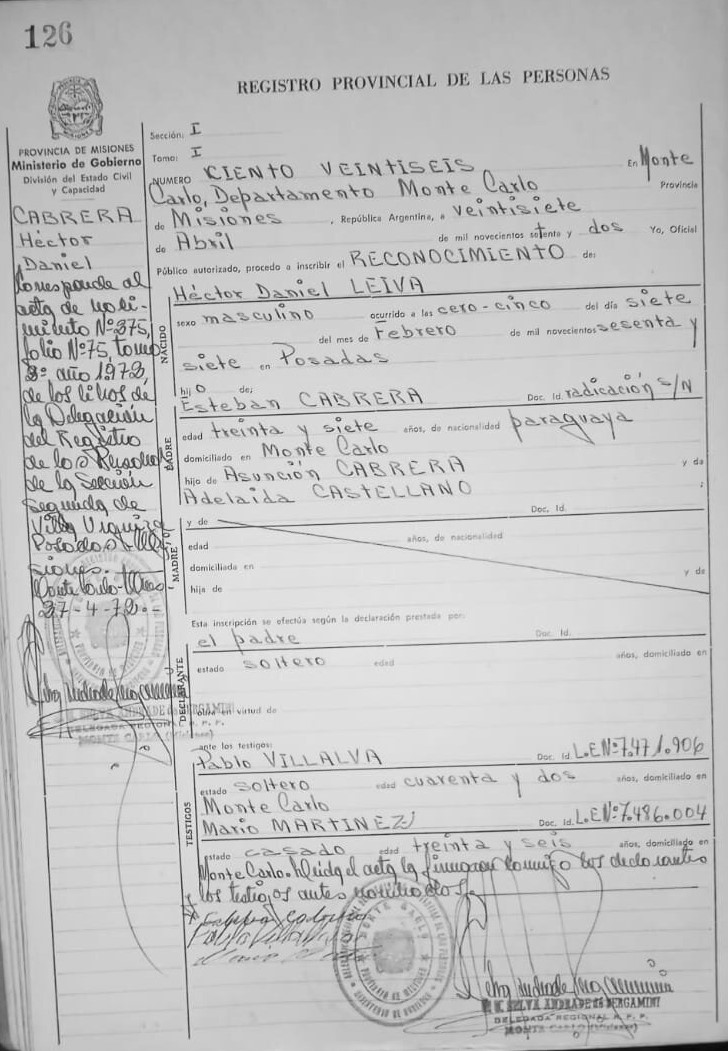 126
REGISTRO PROVINCIAL DE LAS PERSONAS
PROVINCIA DE MISIONES
Ministerio de Gobierno
División del Estado Civil
y Capacidad
CABRERA
Héctor
Daniel
Corresponde al
acta de naci-
miento Nº 375,
folio Nº 75, tomo
2º año 1972,
de los libros de
la Delegación
del Registro
de las Personas
de la Sección
Segunda de
Villa Urquiza
Posadas
siones.
Monte Carlo
27-4-72.-
DELEGADA REGIONAL R. P. P.
MONTE CARLO (Misiones)
Sección: I
Tomo: I
NUMERO CIENTO VEINTISEIS En Monte
Carlo, Departamento Monte Carlo Provincia
de Misiones , República Argentina, a veintisiete
de Abril de mil novecientos setenta y dos Yo, Oficial
Público autorizado, procedo a inscribir el RECONOCIMIENTO de:
NACIDO
Héctor Daniel LEIVA
sexo masculino ocurrido a las cero-cinco del día siete
del mes de Febrero de mil novecientos sesenta y
siete en Posadas
hijo de:
PADRE
Esteban CABRERA Doc. Id. radicación S/N
edad treinta y siete años, de nacionalidad paraguaya
domiciliado en Monte Carlo
hijo de Asunción CABRERA y da
Adelaida CASTELLANO ;
MADRE
y de Doc. Id.
edad años, de nacionalidad
domiciliada en
hija de y de
Esta inscripción se efectúa según la declaración prestada por:
DECLARANTE
el padre Doc. Id.
estado soltero edad años, domiciliado en
obra en virtud de
ante los testigos:
TESTIGOS
Pablo VILLALVA Doc. Id. L.E Nº 7.471.906
estado soltero edad cuarenta y dos años, domiciliado en
Monte Carlo
Mario MARTINEZ Doc. Id. L.E Nº 7.486.004
estado casado edad treinta y seis años, domiciliado en
Monte Carlo. Leída el acta la firman conmigo los declarantes
y los testigos antes nombrados.
MONTE CARLO
PROVINCIA DE MISIONES
MINISTERIO DE GOBIERNO
SELVA ANDRADE de BERGAMINI
DELEGADA REGIONAL R. P. P.
MONTE CARLO (Misiones)